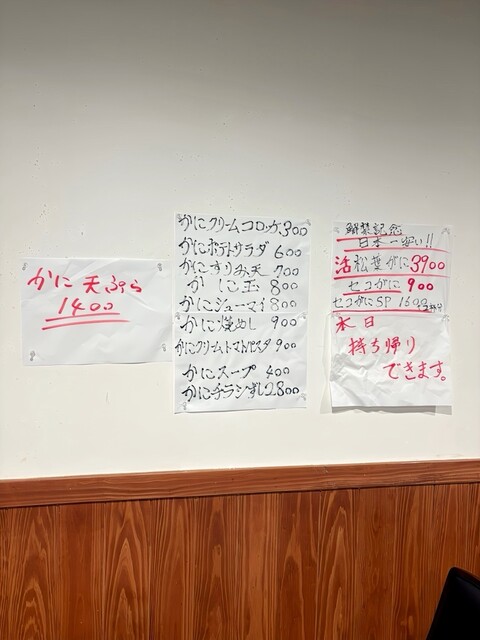 かに天ぷら
1400
かにクリームコロッケ300
かにポテトサラダ 600
かにすりみ天 700
かに玉 800
かにシューマイ 800
かに焼めし 900
かにクリームトマトパスタ 900
かにスープ 400
かにチラシずし2.800
解禁記念
日本一安い!!
活松葉がに3900
セコがに 900
セコがにSP 1600
本日
持ち帰り
できます。